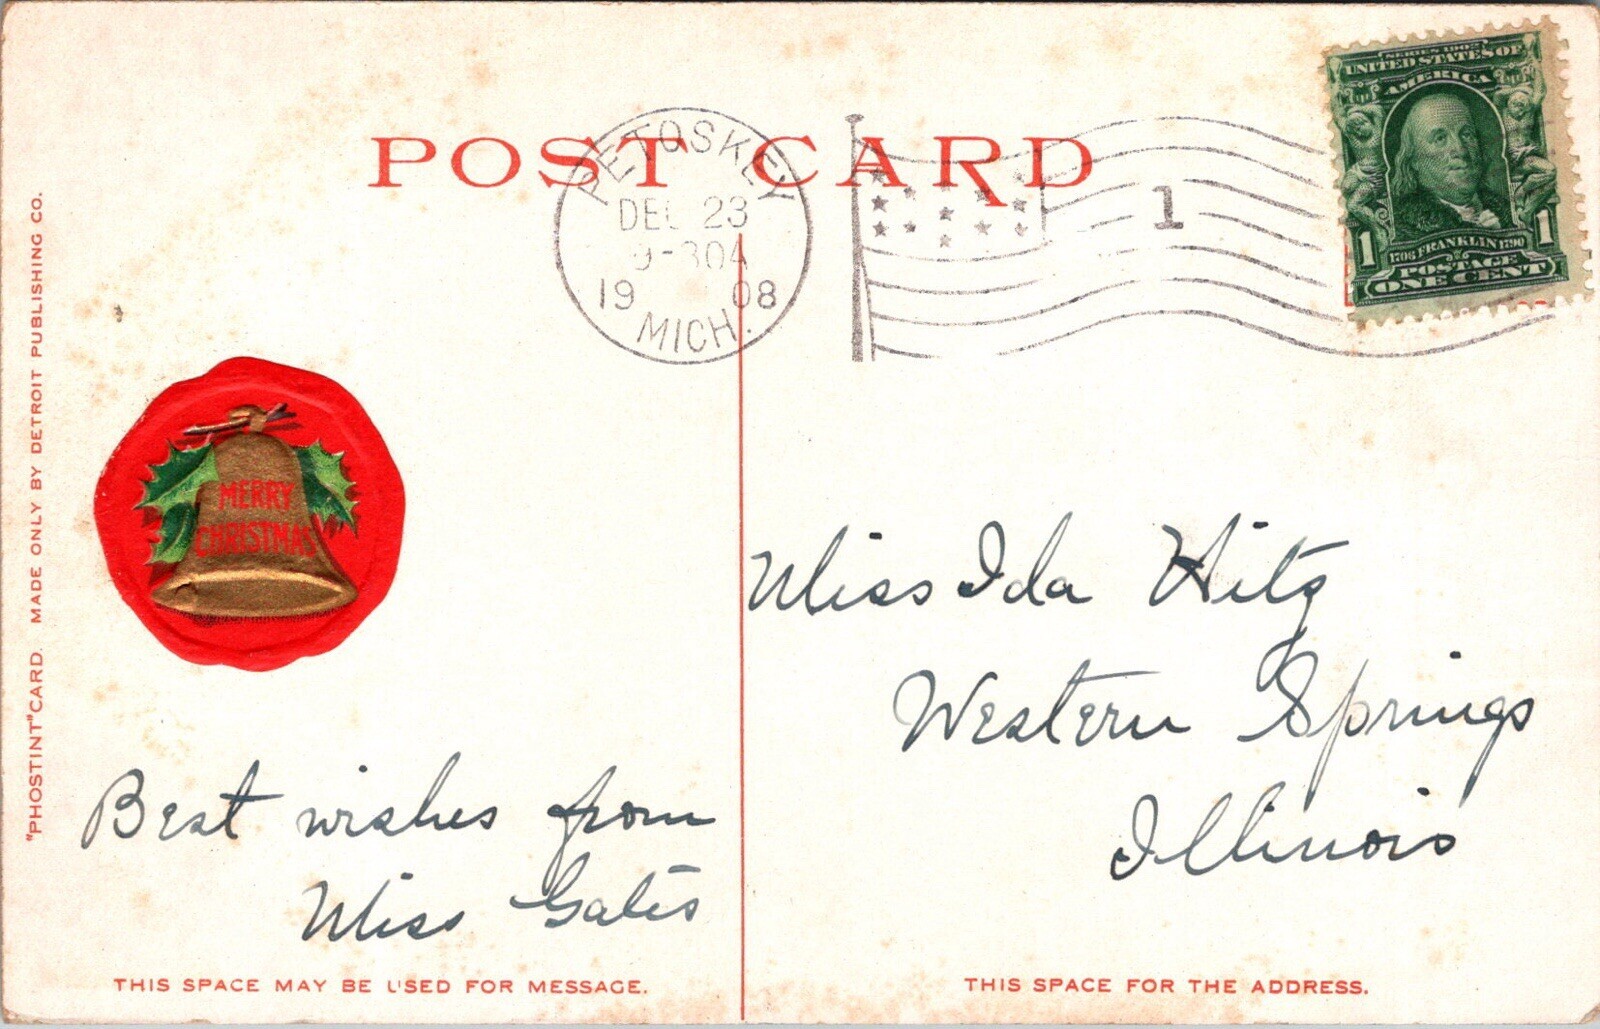 POST CARD
PETOSKEY
DEC 23
9-30A
1908
MICH.
1
SERIES 1902
UNITED STATES OF
AMERICA
1706 FRANKLIN 1790
1 1
POSTAGE
ONE CENT
"PHOSTINT" CARD. MADE ONLY BY DETROIT PUBLISHING CO.
MERRY
CHRISTMAS
Miss Ida Hitz
Western Springs
Illinois
Best wishes from
Miss Gates
THIS SPACE MAY BE USED FOR MESSAGE.
THIS SPACE FOR THE ADDRESS.